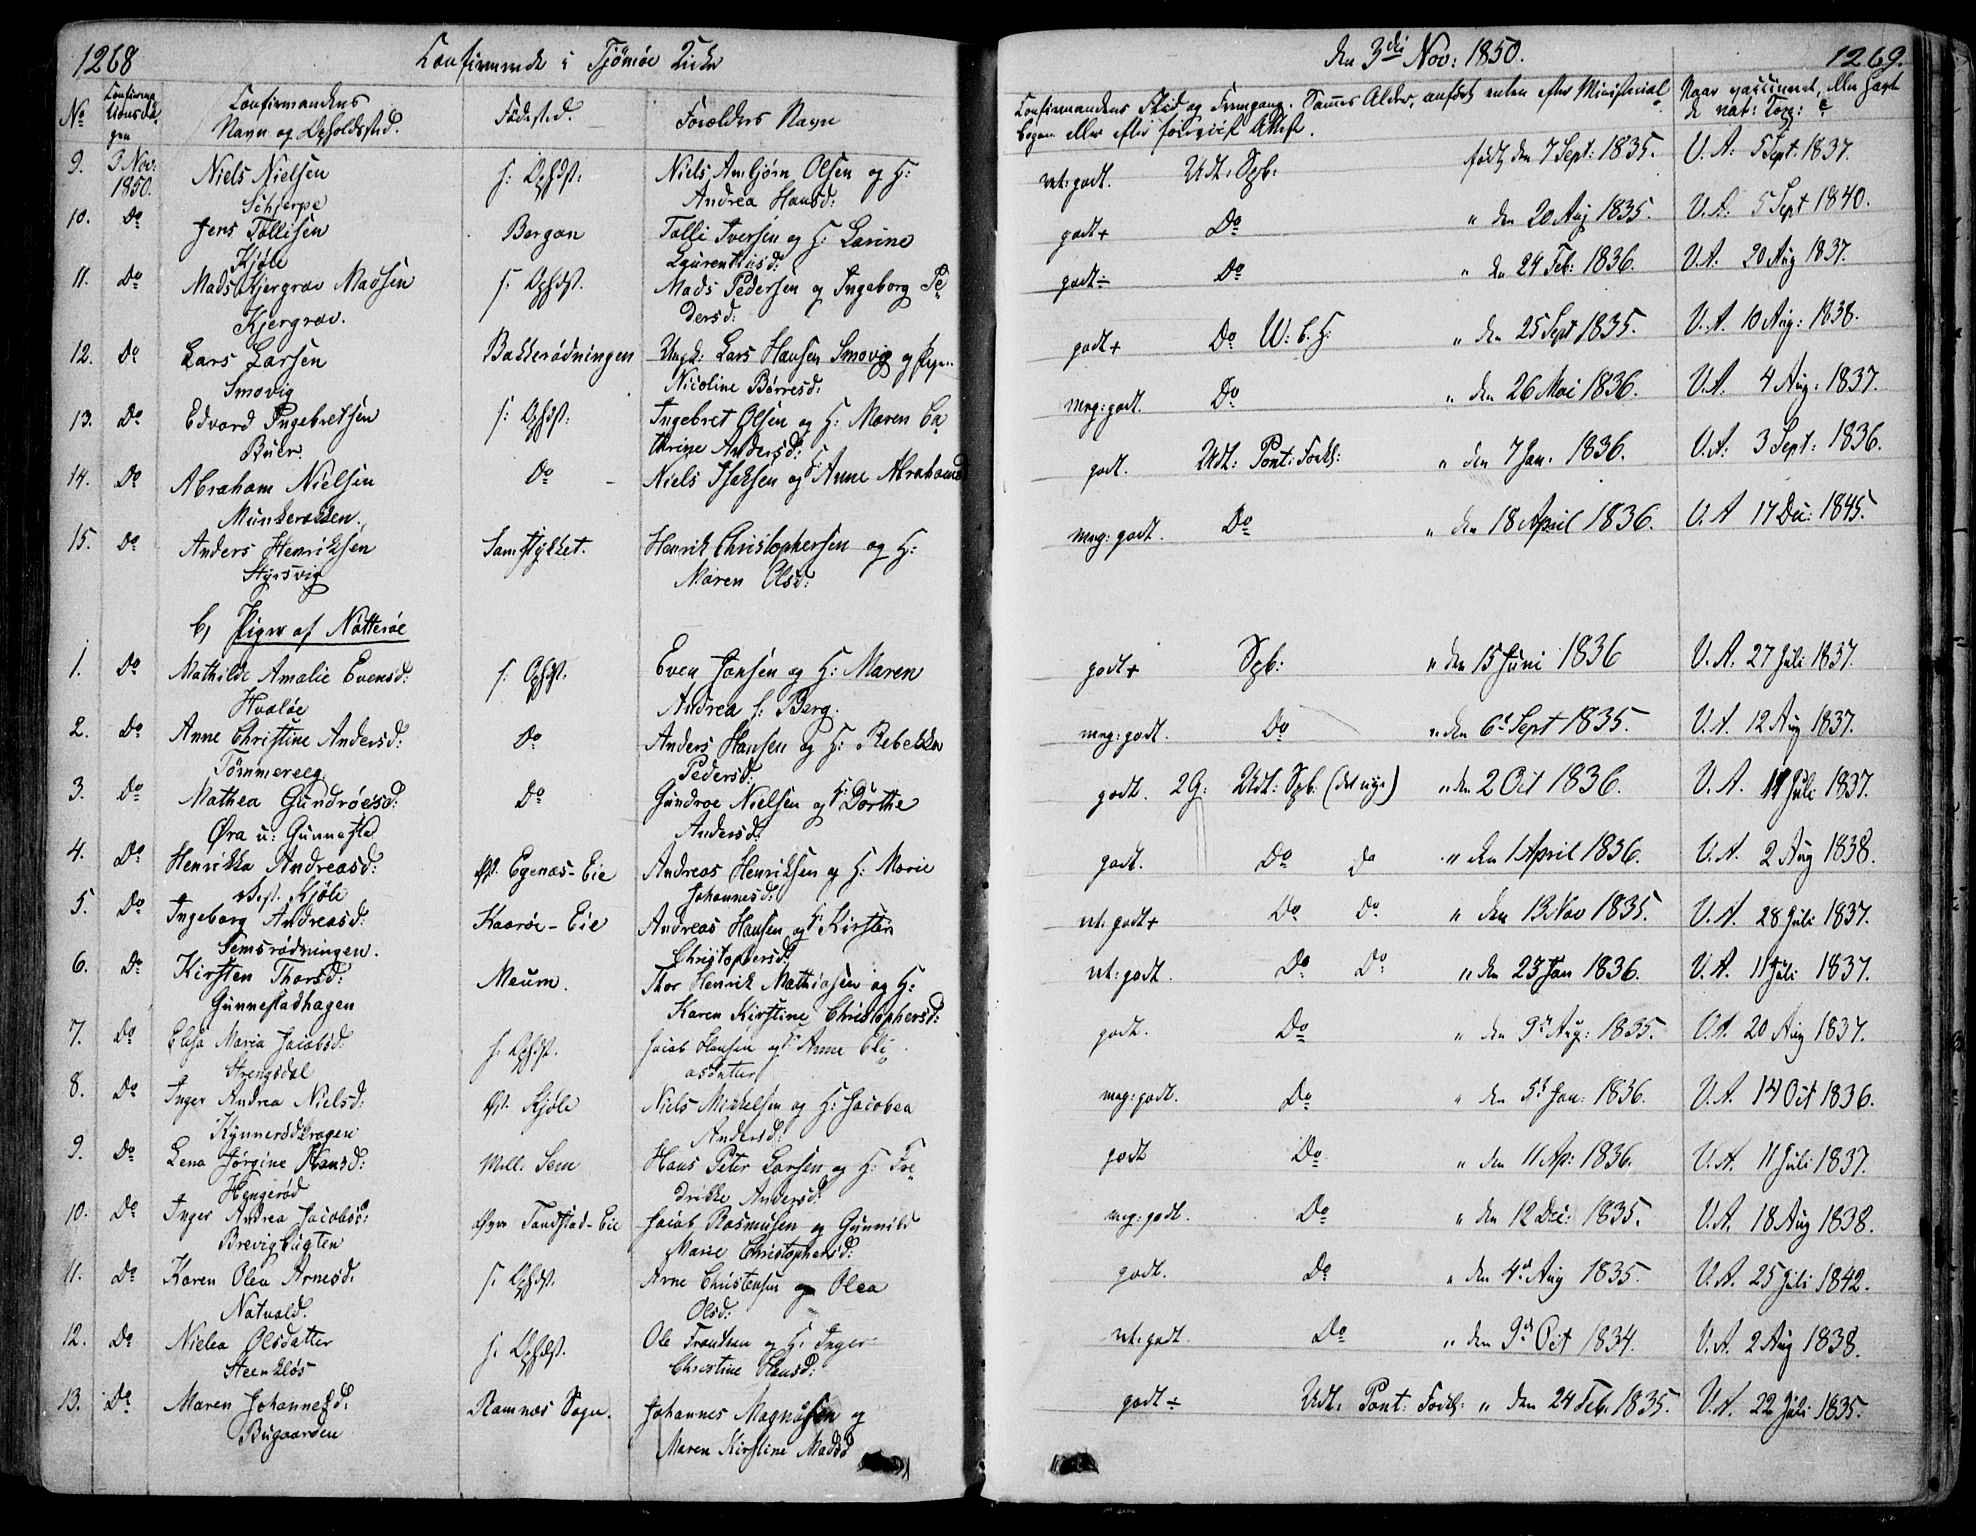 1268
Confirmerede i Tjömöe Kirke
No
Confirmationsdagen
Confirmandens
Navn og Opholdssted.
Fødested.
Forældres Navn
9. 3 Nov: 1850. Niels Nielsen f: Ophdst. Niels Anbjørn Olsen og H:
Schjerpe Andrea Hansd:
10. Do Jens Tollisen Bergan Tolli Iversen og H: Larine
Kjøle Laurentiusd:
11. Do Mads Kjergrav Madsen f: Ophdst. Mads Pedersen og Ingeborg Pe
Kjergrav. dersd:
12. Do Lars Larsen Bakkerødningen Ungk: Lars Hansen Smovig og Pige
Smovig Nicoline Børresd:
13. Do Edvard Ingebretsen f: Ophdst. Ingebret Olsen og H: Maren Ca
Buer. thrine Andersd:
14. Do Abraham Nielsen Do Niels Isaksen og H: Anne Abrahamsd
Munkerækken.
15. Do Anders Henriksen Samstykket. Henrik Christophersen og H:
Styrsvig Maren Olsd:
b, Piger af Nötteröe
1. Do Mathilde Amalie Evensd: f: Ophdst. Even Jansen og H: Maren
Hvaløe Andrea f: Berg.
2. Do Anne Christine Andersd: Do Anders Hansen og H: Rebekka
Tømmereeg. Pedersd:
3. Do Mathea Gundröesd: Do Gundroe Nielsen og H: Dorthe
Øra u: Gunnestad Andersd:
4. Do Henrikka Andreasd: Øst. Egenæs-Eie Andreas Henriksen og H: Marie
Vest. Kjøle Johannesd:
5. Do Ingeborg Andreasd: Kaarøe-Eie Andreas Hansen og H: Kirstin
Semsrødningen. Christophersd:
6. Do Kirsten Thorsd: Meum. Thor Henrik Mathiasen og H:
Gunnestadhagen Karen Kirstine Christophersd:
7. Do Elise Maria Jacobsd: f: Ophdst. Jacob Hansen og H: Anne Eli
Strengsdal asdatter
8. Do Inger Andrea Nielsd: Øst. Kjøle Niels Mikkelsen og H: Jacobea
Kynnerødkragen Andersd:
9. Do Lena Jørgine Hansd: Mell. Sem Hans Peter Larsen og H: Fre
Hengerød drikke Andersd:
10. Do Inger Andrea Jacobsd: Øvre Tandstad-Eie Jacob Rasmusen og Gunnild
Brevigbugten Marie Christophersd:
11. Do Karen Olea Arnesd: f: Ophdst. Arne Christensen og Olea
Natvald. Olsd:
12. Do Nielea Olsdatter f. Ophdst. Ole Frantsen og H. Inger
Steenkløs Christine Hansd:
13. Do Maren Johannesd. Ramnæs Sogn. Johannes Magnusen og
Bugaarden Maren Kirstine Madsd
den 3die Nov: 1850.
1269.
Confirmandens Flid og Fremgang. Sammes Alder, anført enten efter Ministerial
bogen eller efter foreviist Attest.
Naar vaccineret, eller havt
de nat: Kop: &
nt: godt. Udt: Spb: født den 7 Sept: 1835. V. A: 5 Sept: 1837.
godt+ Do " den 20 Aug 1835. V. A: 5 Sept 1840.
godt÷ Do " den 24 Feb: 1836. V. A. 20 Aug 1837.
godt+ Do W. b. H: " den 25 Sept 1835. V. A. 10 Aug: 1838.
meg: godt. Do " den 26 Mai 1836. V. A. 4 Aug. 1837.
godt. Udt: Pont: Forkl: " den 7 Jan. 1836. V. A: 3 Sept: 1836.
meg: godt. Do " den 18 April 1836. V. A 17 Dec: 1845.
godt+ Spb: " den 15 Juni 1836 V. A. 27 Juli 1837.
meg: godt. Do " den 6t Sept 1835. V. A. 12 Aug 1837.
godt. 2 G: Udt: Spb: (det nye) " den 2 Oct 1836. V. A. 11 Juli 1837.
godt. Do Do " den 1 April 1836. V. A. 2 Aug 1838.
nt. godt+ Do Do " den 13 Nov 1835. V. A. 28 Juli 1837.
nt: godt. Do Do " den 23 Jan 1836. V. A. 11 Juli 1837.
godt. Do " den 9de Aug: 1835. V. A. 20 Aug 1837.
meg: godt. Do " den 5t Jan: 1836. V. A. 14 Oct 1836.
godt Do " den 11 Ap: 1836. V. A. 11 Juli 1837.
meg: godt. Do " den 12 Dec: 1835. V. A. 18 Aug 1838.
godt. Do " den 4de Aug 1835. V. A. 25 Juli 1842.
nt: godt. Do " den 9de Oct 1834. V. A. 2 Aug 1838.
godt÷ Udt. Pont: Forkl: " den 24 Feb. 1835. V. A. 22 Juli 1835.